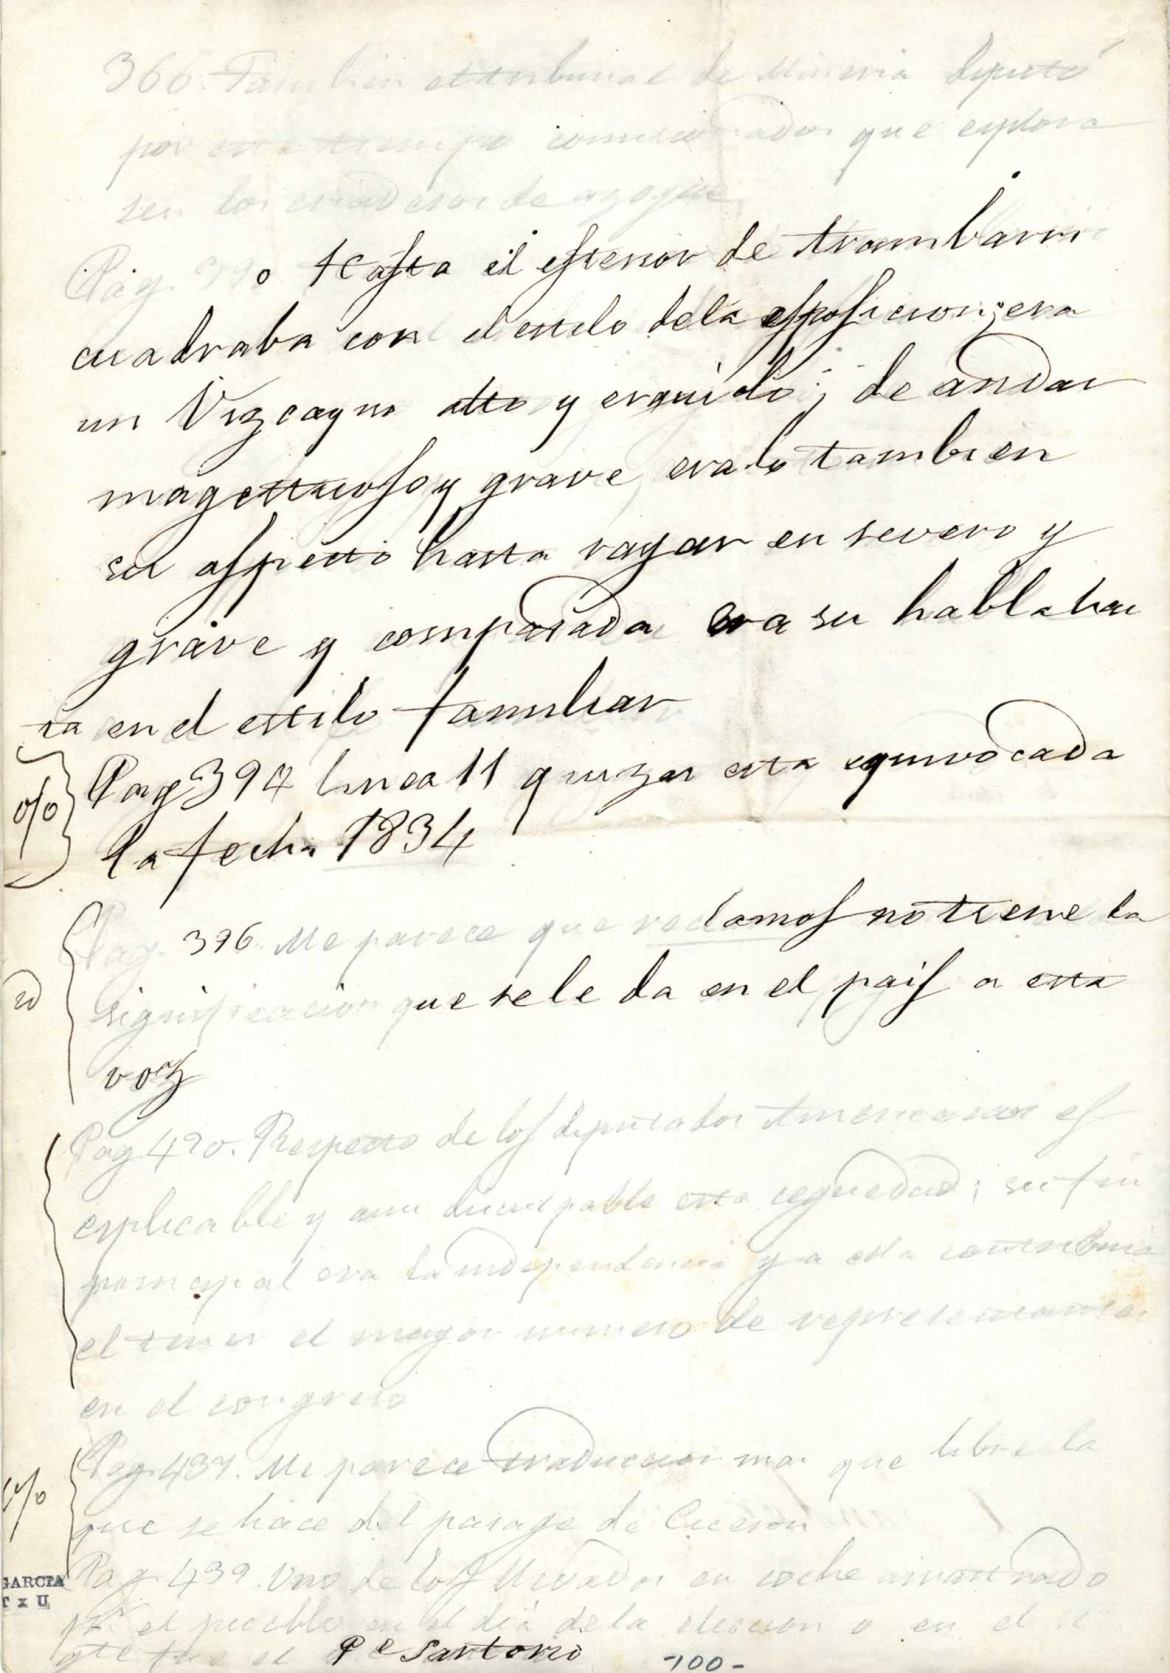 366. Tambien el tribunal de Mineria diputó
por este tiempo comisionados que explora
sen los criaderos de azogue
Pag. 390 Hasta el esterior de Irambarri
cuadraba con el estilo dela esposicion; era
un Vizcayno alto y erguido; de andar
magestuoso y grave, eralo tambien
su aspecto hasta rayar en severo y
grave y compasada era su habla has
ta en el estilo familiar
%
Pag 394 linea 11 quizas esta equivocada
la fecha 1834
Pag. 396. Me parece que reclamos no tiene la
significacion que se le da en el pais a esta
voz
Pag 420. Respecto de los diputados Americanos es
esplicable y aun disculpable esta ceguedad; su fin
principal era la independencia y a ella contribuia
el tener el mayor numero de representantes
en el congreso
%
Pag. 437. Me parece traduccion mas que libre la
que se hace del pasage de Ciceron
Pag. 439. Uno de los llevados en coche arrastrado
pr. el pueblo en el dia de la eleccion o en el
fue el Pe Sartorio
GARCIA
-100-